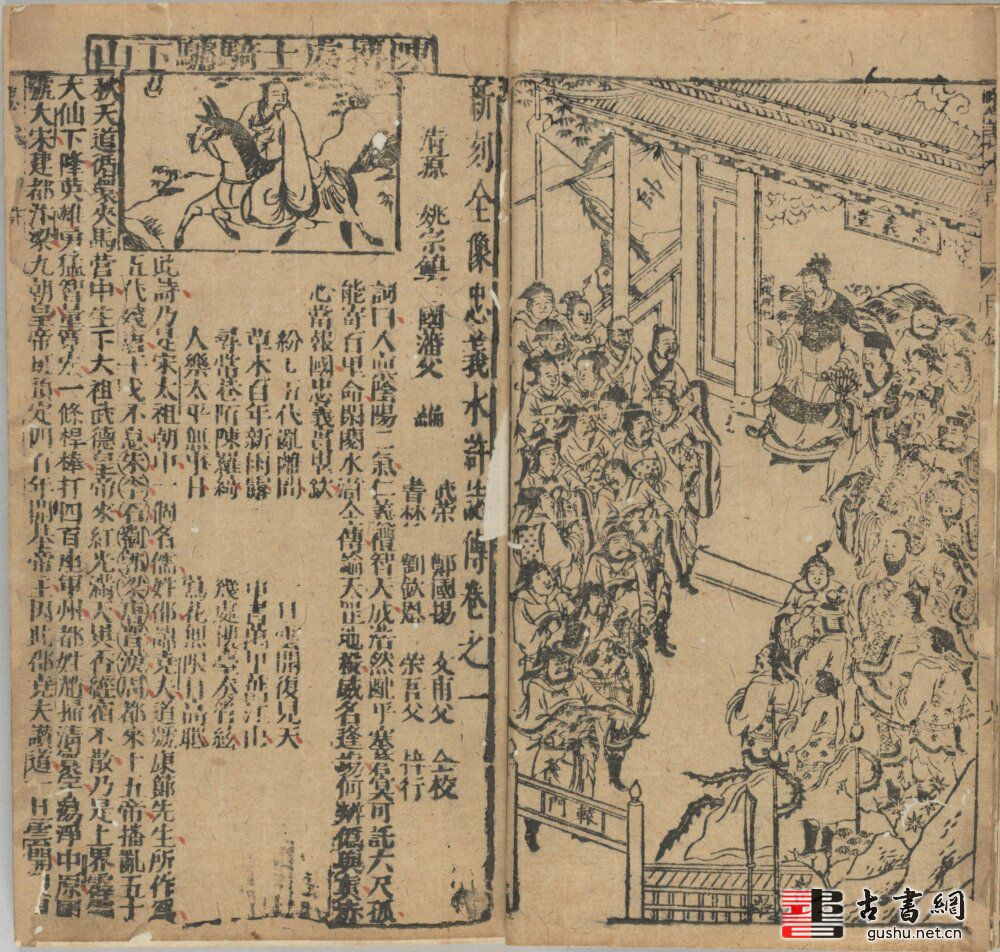 帥
忠義堂
轅門
陳摶處士騎驢下山
新刻全像忠義水滸誌傳卷之一
清源 姚宗鎮 國藩父 編
武榮 鄭國揚 文甫父 仝校
書林 劉欽恩 榮吾父 梓行
詞曰人稟陰陽二氣仁義禮智天成浩然配乎塞蒼冥可託六尺孤
能寄百里命閑閱水滸全傳論天罡地煞威名逢場何辨偽與真赤
心當報國忠義貫
紛紛五代亂離間 一旦雲開復見天
草木百年新雨露 車書萬里舊江山
尋常巷陌陳羅綺 幾處樓臺奏管絃
人樂太平無事日 鶯花無限日高眠
此詩乃是宋太祖朝中一個名儒姓邵諱堯夫道號康節先生所作為
五代殘唐干戈不息朱李石劉郭梁唐晉漢周都來十九帝播亂五十
秋天道循環夾馬營中生下太祖武德皇帝來紅光滿天異香經宿不散乃是上界霹靂
大仙下降英雄勇猛智量寬宏一條桿棒打四百座軍州都姓趙掃清寰宇蕩淨中原國
號大宋建都汴梁九朝皇帝班頭定四百年開基帝王因此邵堯夫讚道一旦雲開復見
古書網
gushu.net.cn